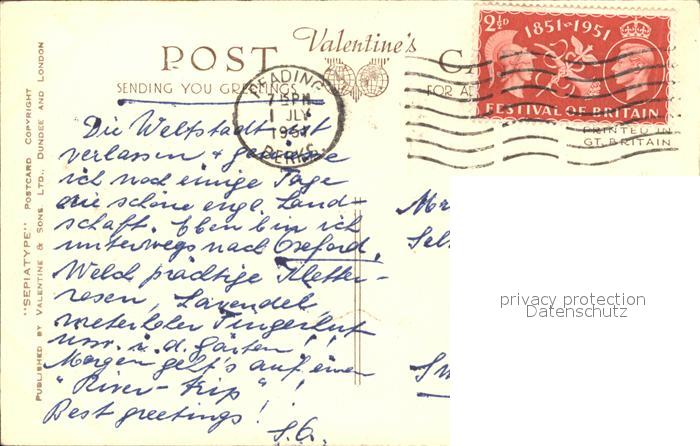 POST
Valentine's
SENDING YOU GREETINGS
2½D
1851-1951
FESTIVAL OF BRITAIN
PRINTED IN
GT. BRITAIN
READING
7 15 PM
1 JLY
1951
BERKS.
"SEPIATYPE" POSTCARD COPYRIGHT
PUBLISHED BY VALENTINE & SONS LTD., DUNDEE AND LONDON
Die Weltstadt ist
verlassen + geniesse
ich noch einige Tage
die schöne engl. Land-
schaft. Eben bin ich
unterwegs nach Oxford.
Welch prächtige Kletter-
rosen, Lavendel,
meterhoher Fingerhut
usw. i. d. Gärten!!
Morgen geht's auf einen
"River-trip"!
Best greetings!
S.G.
privacy protection
Datenschutz